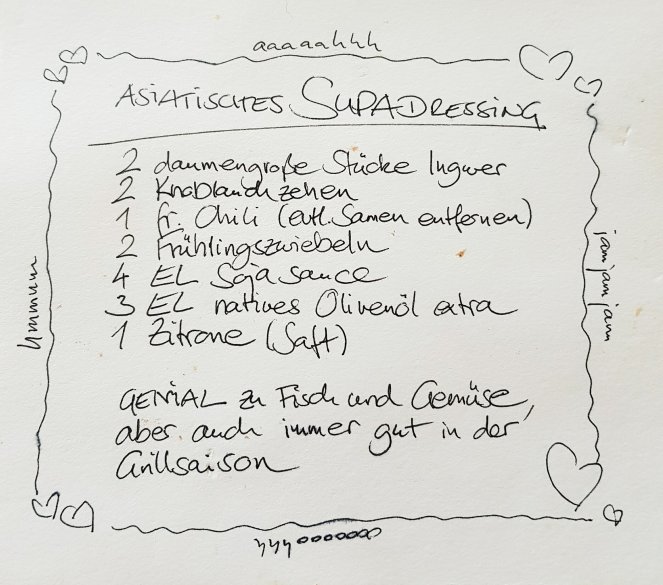 aaaaahhh
ASIATISCHES SUPADRESSING
2 daumengroße Stücke Ingwer
2 Knoblauchzehen
1 fr. Chili (evtl. Samen entfernen)
2 Frühlingszwiebeln
4 EL Sojasauce
3 EL natives Olivenöl extra
1 Zitrone (Saft)
GENIAL zu Fisch und Gemüse,
aber auch immer gut in der
Grillsaison
jamjamjam